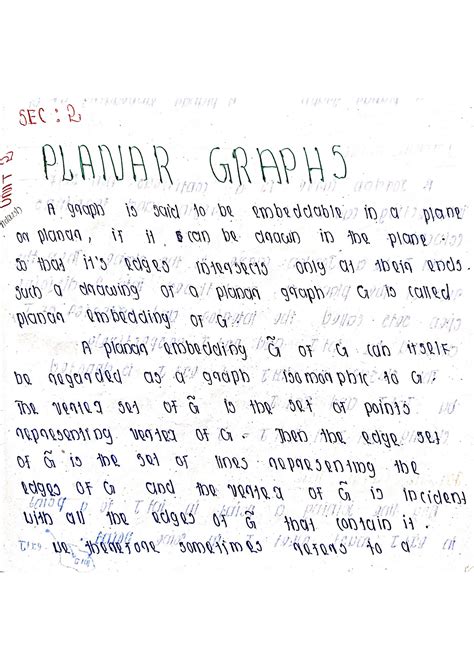 SEC : 2
UNIT
PLANAR GRAPHS
A graph is said to be embeddable in a plane
or planar, if it can be drawn in the plane
so that it's edges intersects only at their ends.
such a drawing of a planar graph G is called
planar embedding of G.
A planar embedding G̃ of G can itself
be regarded as a graph isomorphic to G.
The vertex set of G̃ is the set of points
representing vertex of G - Then the edge set
of G̃ is the set of lines representing the
edges of G and the vertex of G̃ is incident
with all the edges of G̃ that contain it.
we therefore sometimes refers to a